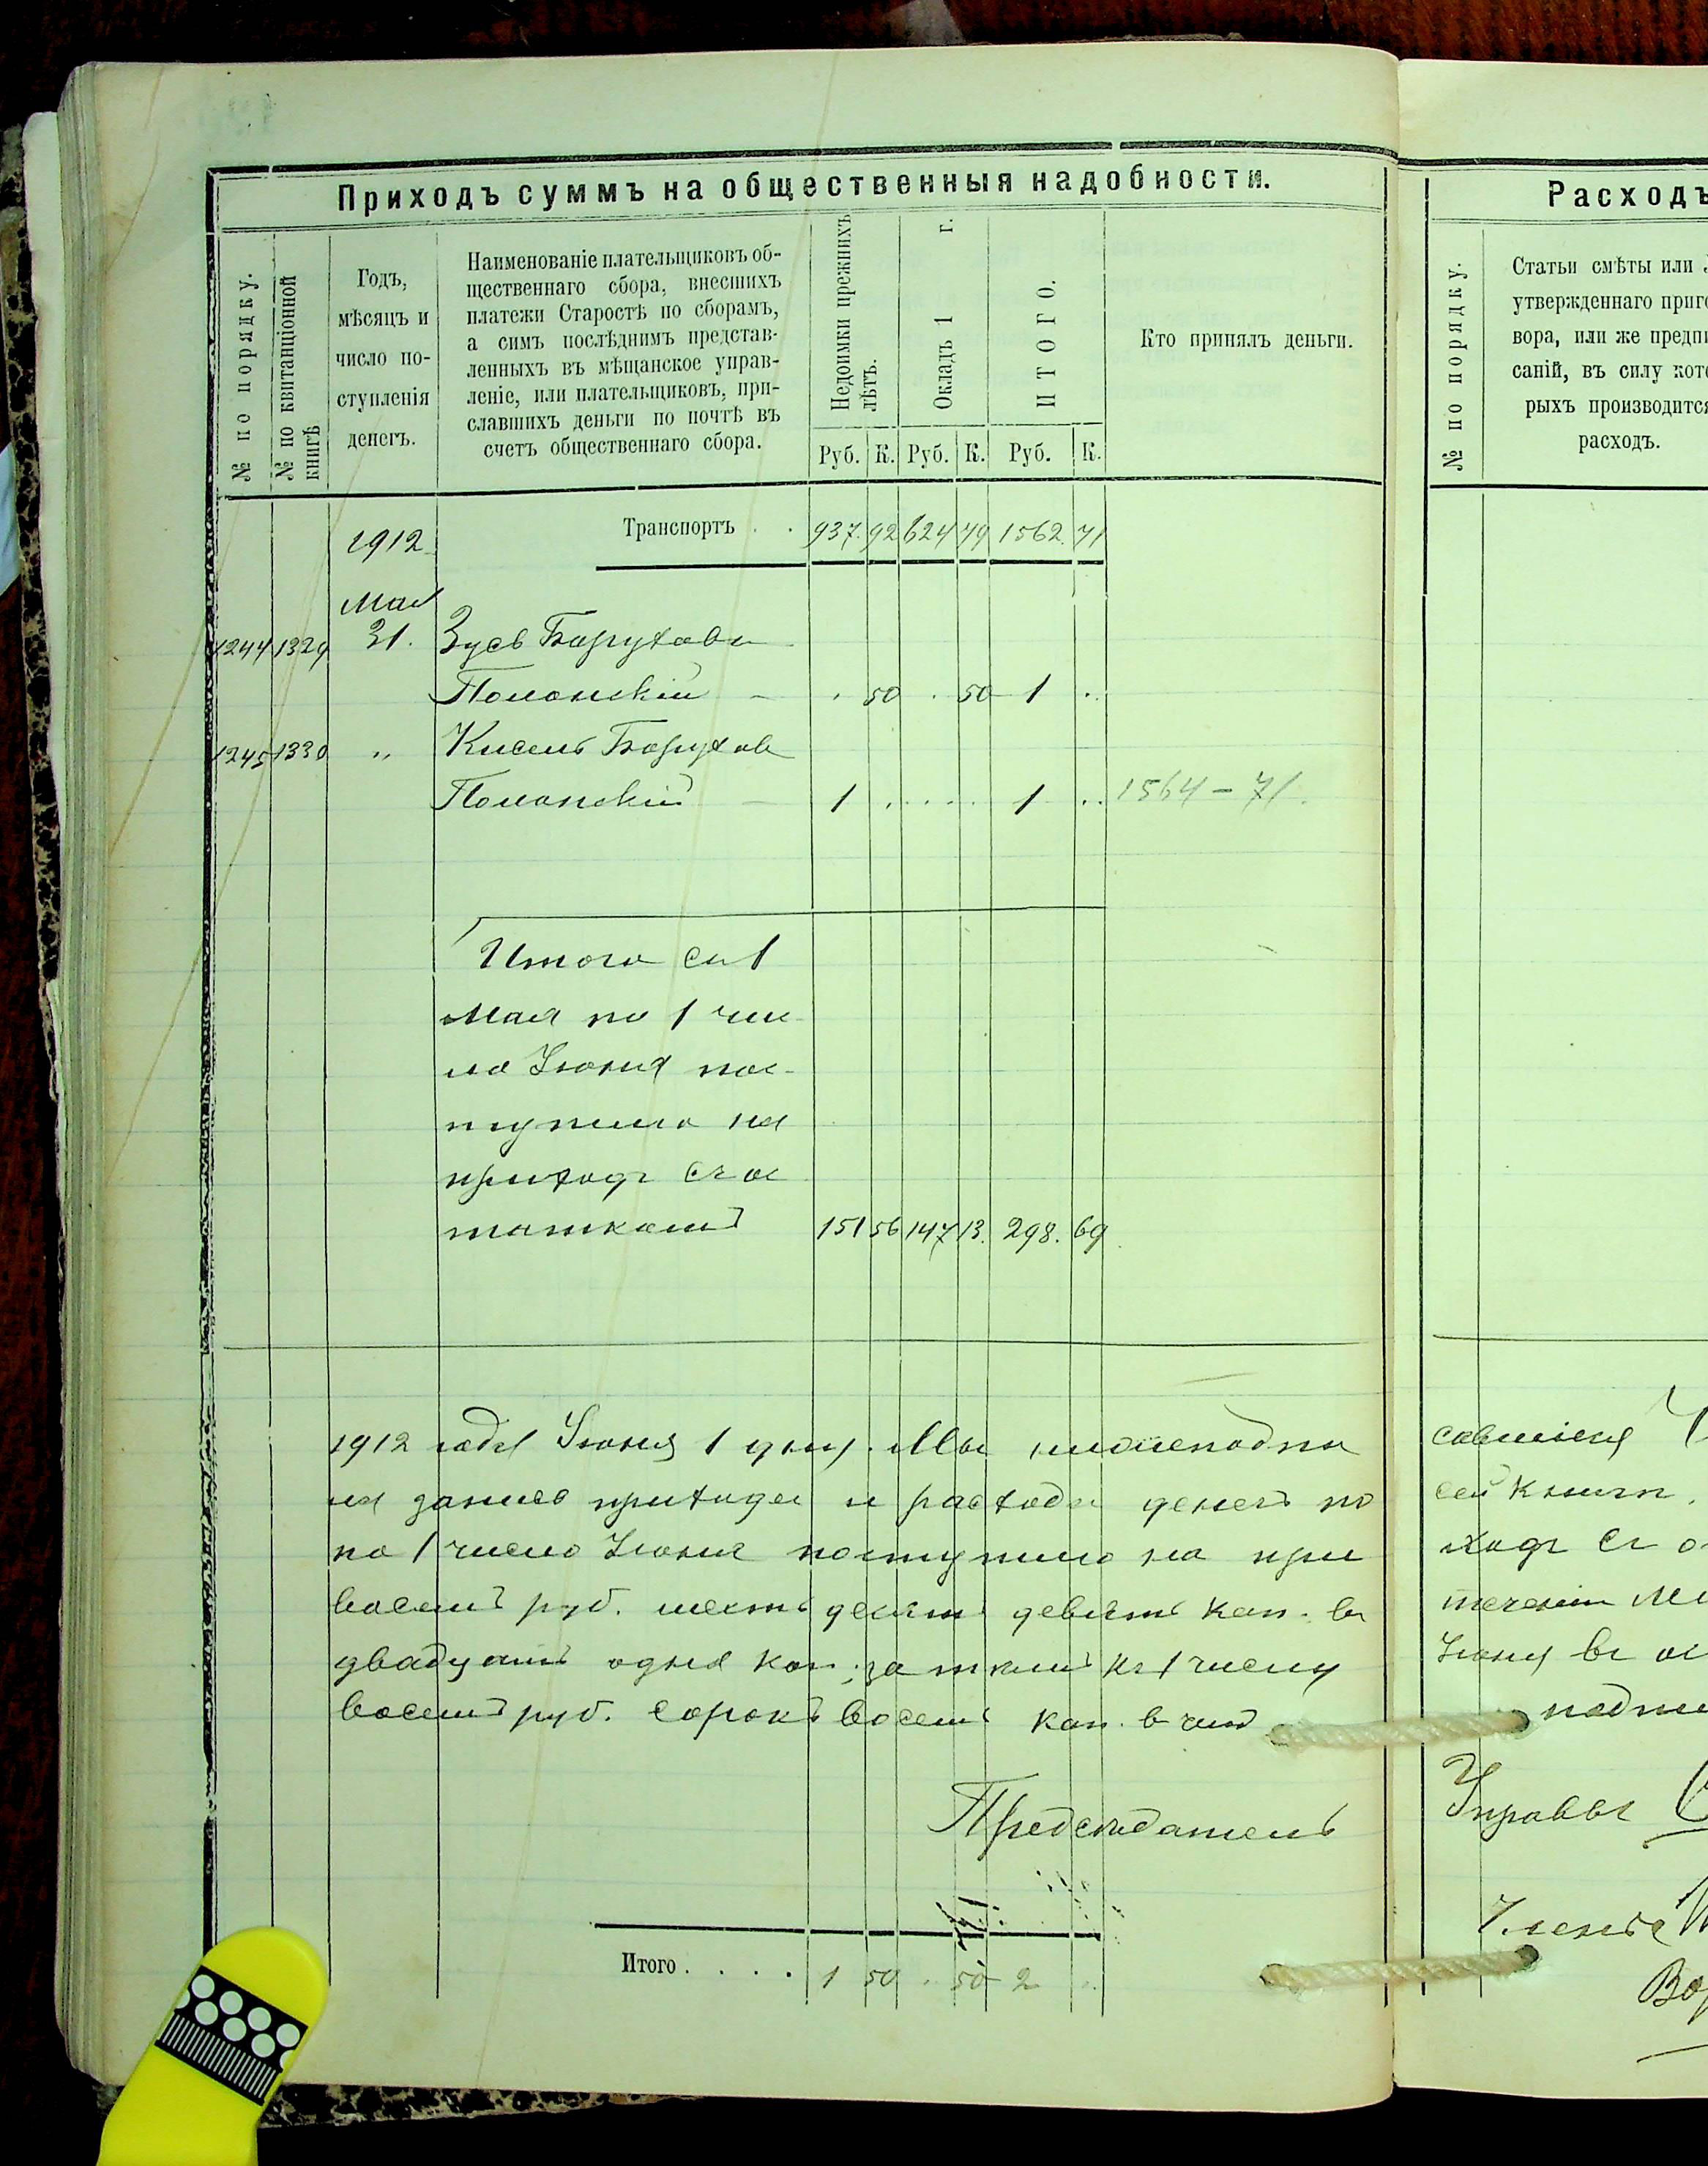 Приходъ суммъ на общественныя надобности.
№ по порядку.
№ по квитанціонной
книгѣ
Годъ,
мѣсяцъ и
число по-
ступленія
денегъ.
Наименованіе плательщиковъ об-
щественнаго сбора, внесшихъ
платежи Старостѣ по сборамъ,
а симъ послѣднимъ представ-
ленныхъ въ мѣщанское управ-
леніе, или плательщиковъ, при-
славшихъ деньги по почтѣ въ
счетъ общественнаго сбора.
Недоимки прежнихъ
лѣтъ.
Окладъ 1 г.
ИТОГО.
Руб. К. Руб. К. Руб. К.
Кто принялъ деньги.
1912 Транспортъ . . 937. 92 624 79 1562. 71
Мая
1244 1329 31. Зусь Боруховъ
Полонскій - . 50 . 50 1 ..
1245 1330 " Кисель Борухов
Полонскій - 1 . . . . . 1 .. 1564 - 71.
Итого съ 1
Мая по 1 чи-
сло Іюня пос-
тупило на
приходъ съ ос
таткомъ 151 56 147 13. 298. 69
1912 года Іюня 1 дня. Мы нижеподпи
на запись прихода и расхода денегъ по
по 1 число Іюня поступило на при
восемь руб. шестьдесятъ девять коп. въ
двадцать одна коп; затемъ къ 1 числу
восемь руб. сорокъ восемь коп. в чем
Председатель
Итого . . . . 1 50 . 50 2 ..
Расходъ
№ по порядку.
Статьи смѣты или
утвержденнаго приго
вора, или же предпи
саній, въ силу кото
рыхъ производится
расходъ.
савшіеся
сей книги.
ходъ съ о
теченіи М
Іюню въ ос
подпи
Управы
Члены